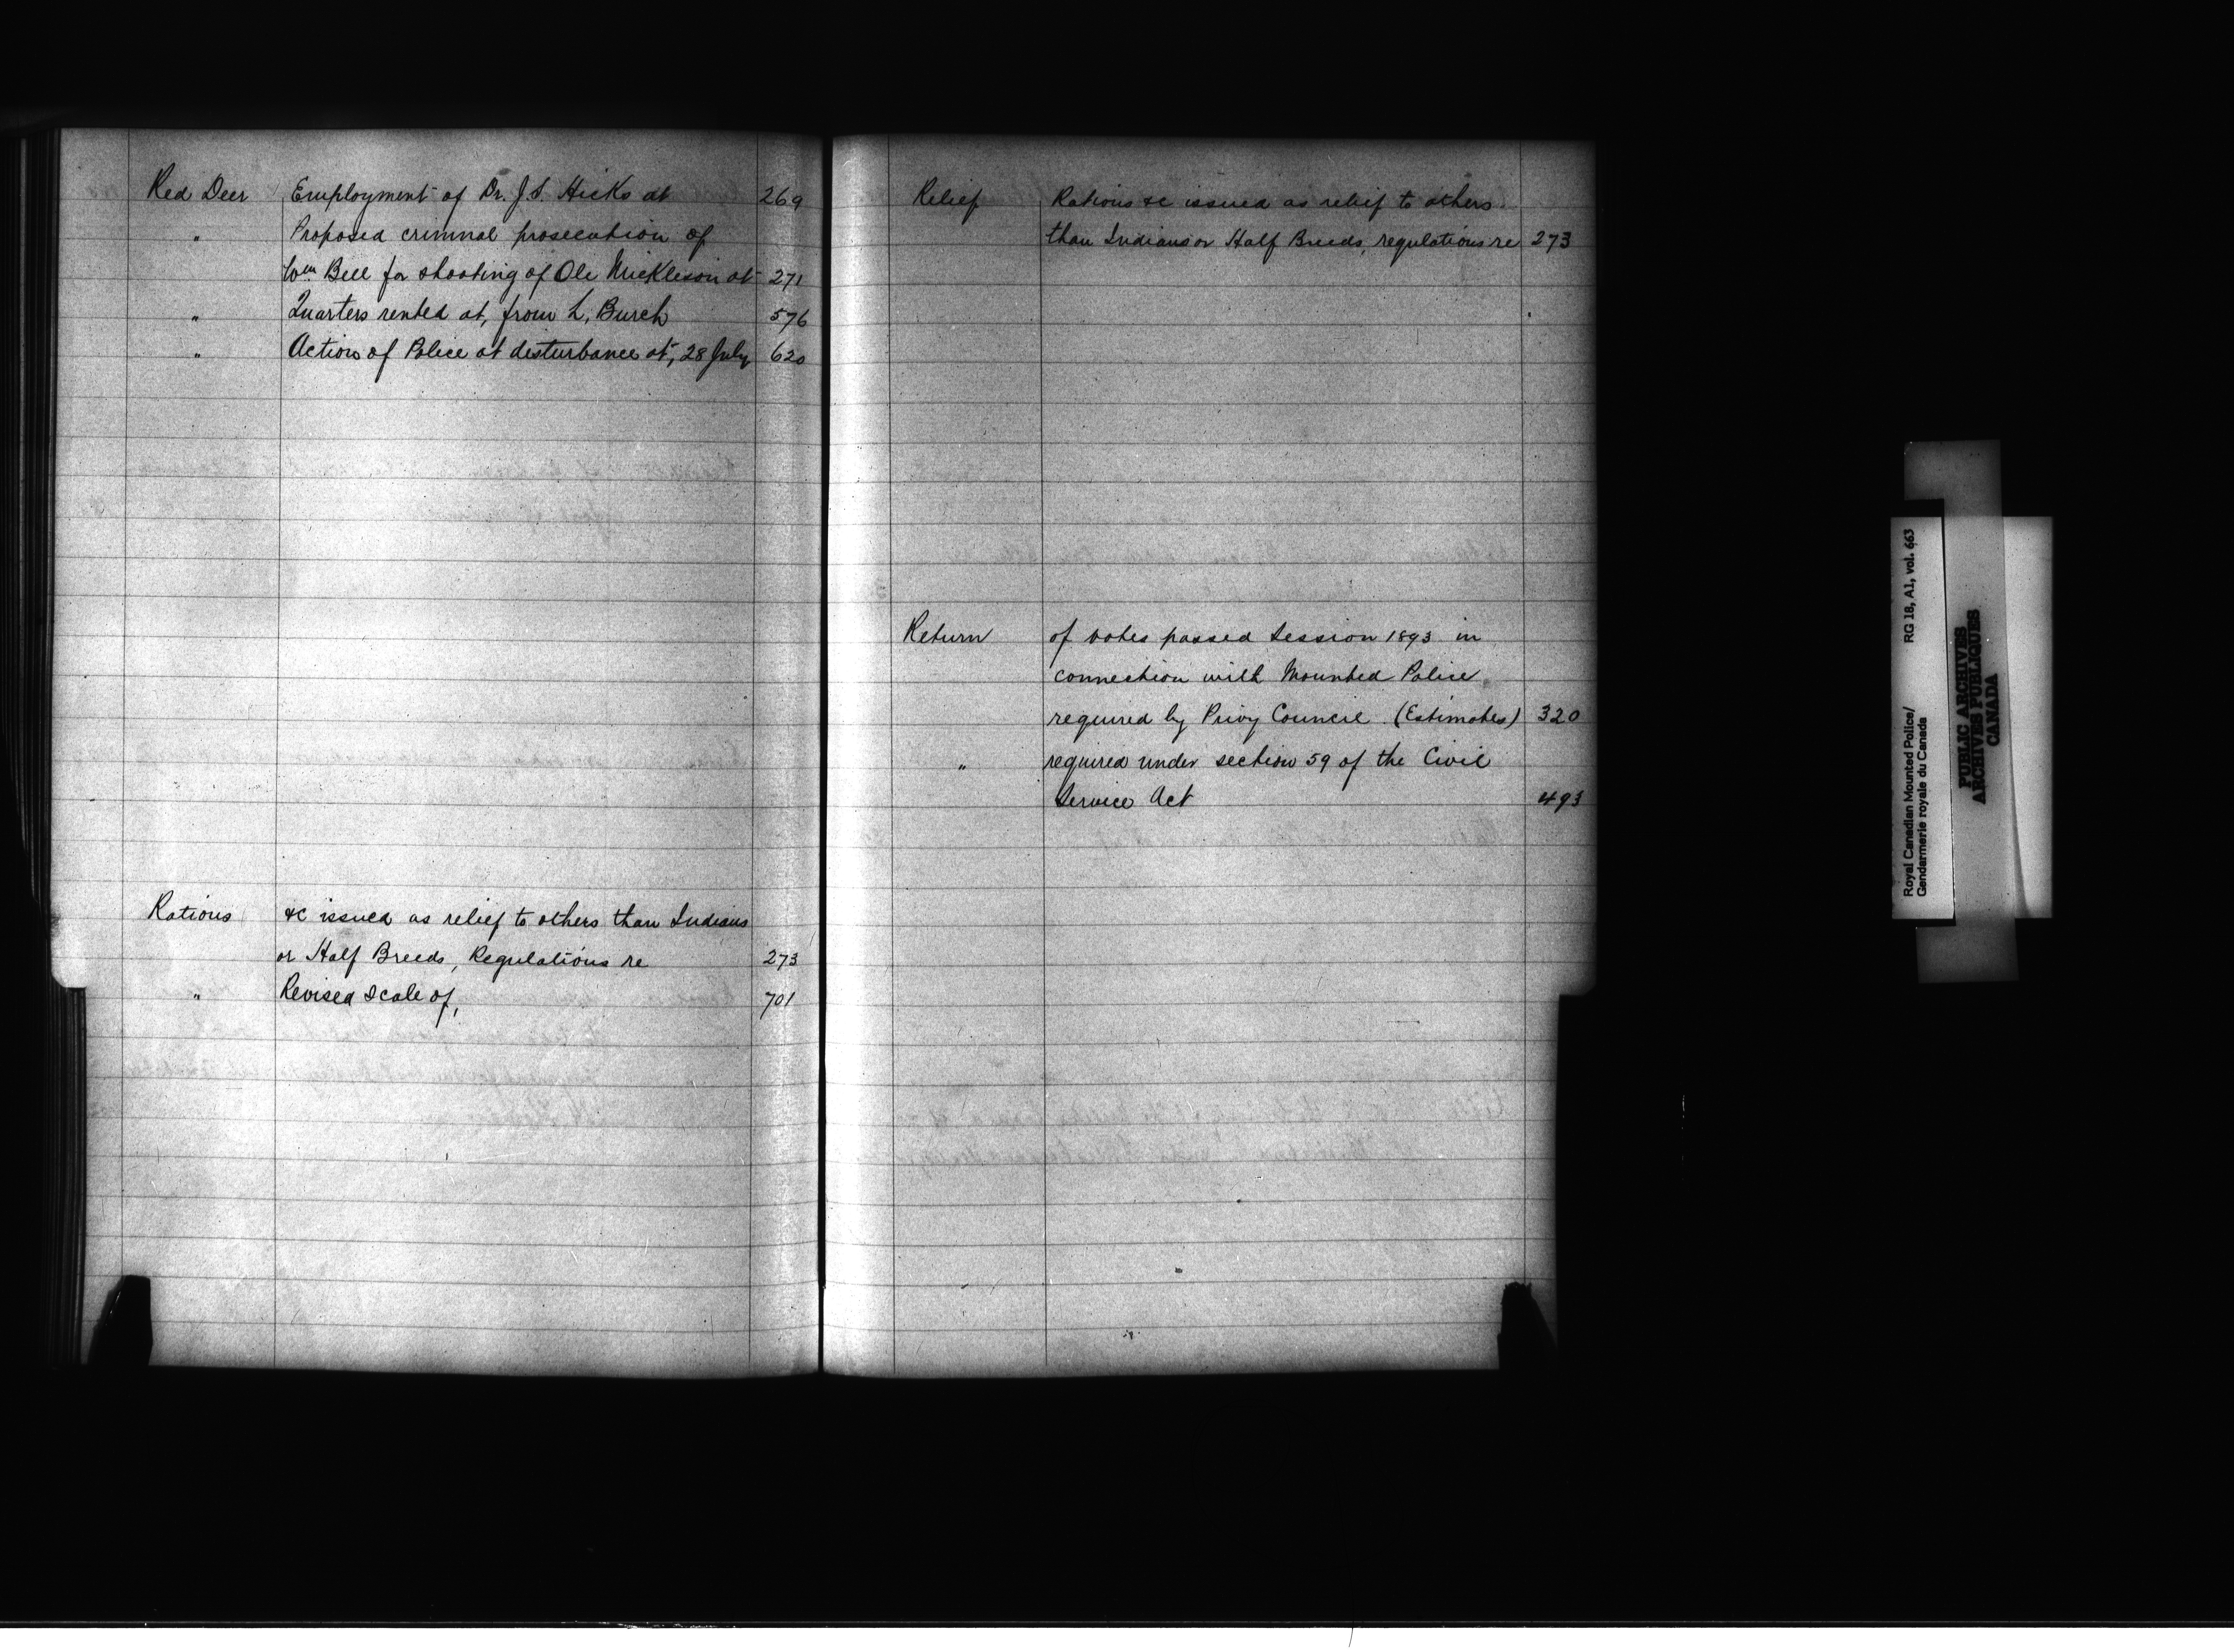 Red Deer Employment of Dr. J.S. Hicks at 269
" Proposed crimnal prosecution of
Wm Bell for shooting of Ole Mickleson at 271
" Quarters rented at, from L. Burch 576
" Action of Police at disturbance at, 28 July 620
Rations &c issued as relief to others than Indians
or Half Breeds, Regulations re 273
" Revised Scale of, 701
Relief Rations &c issued as relief to others
than Indians or Half Breeds, regulations re 273
Return of votes passed Session 1893 in
connection with Mounted Police
required by Privy Council (Estimates) 320
" required under section 59 of the Civil
Service Act 493
Royal Canadian Mounted Police/ RG 18, A1, vol. 663
Gendarmerie royale du Canada
PUBLIC ARCHIVES
ARCHIVES PUBLIQUES
CANADA